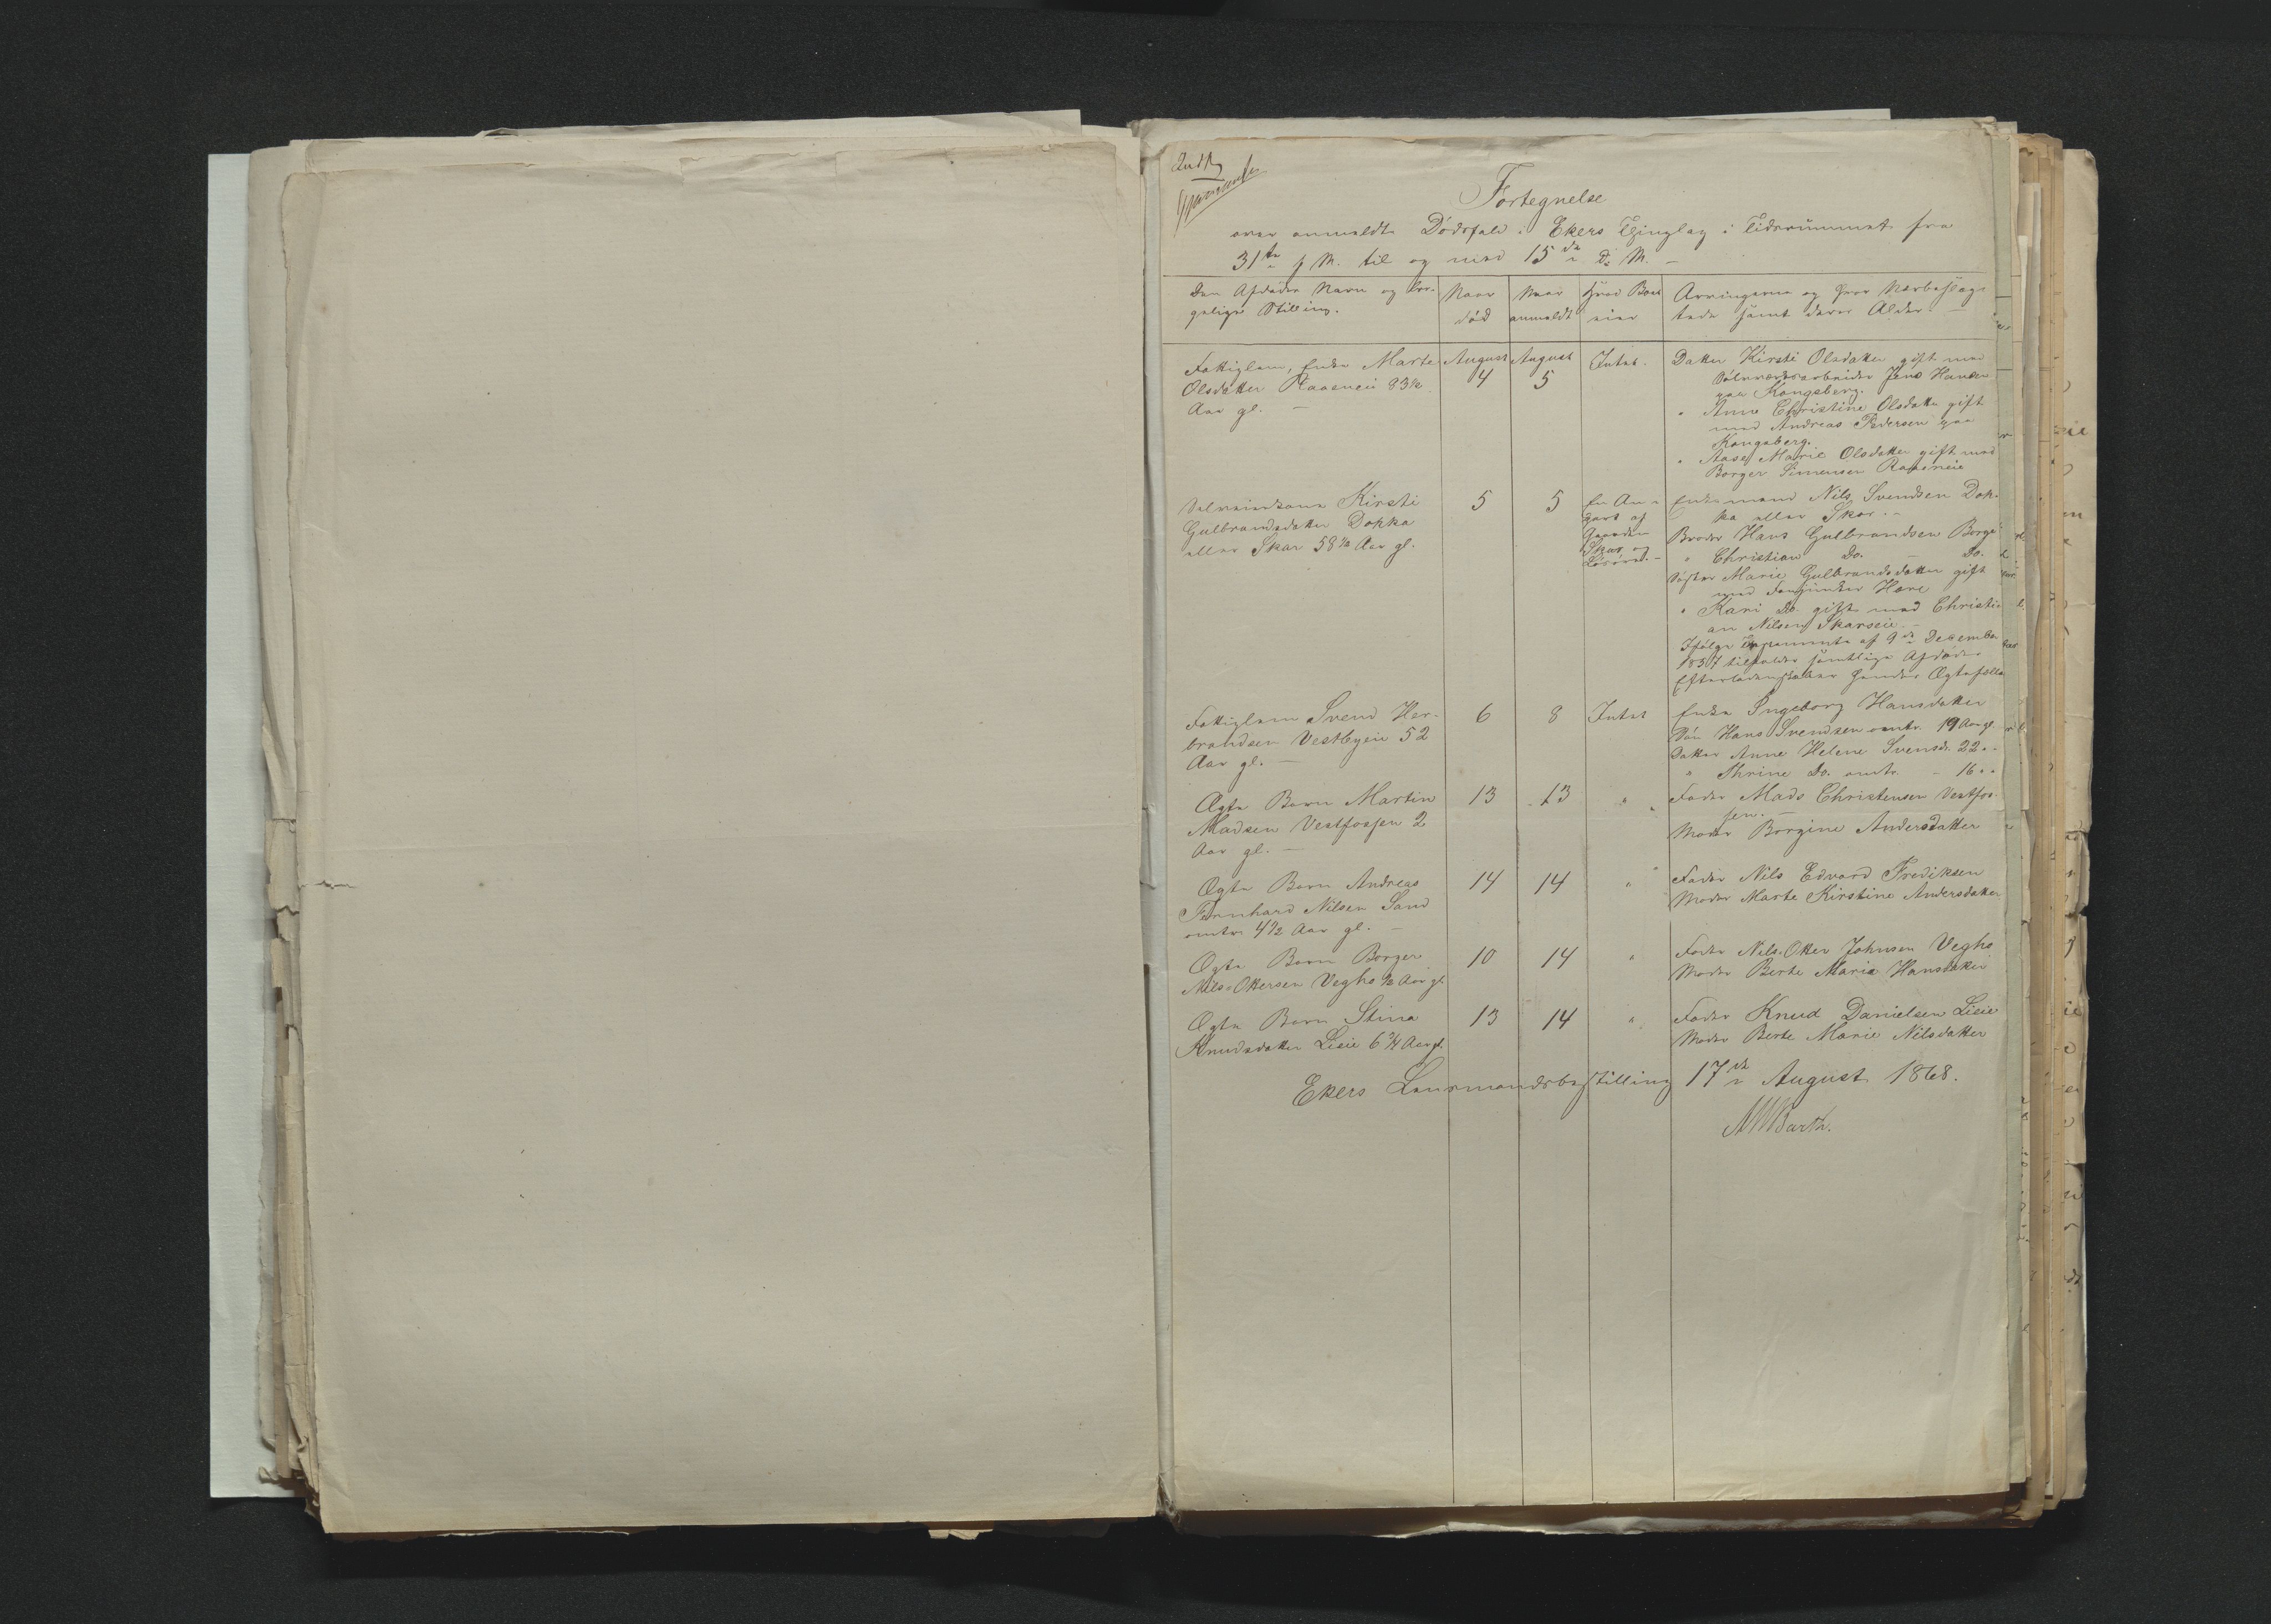 Fortegnelse
over anmeldte Dødsfald i Ekers Thinglag i Tidsrummet fra
31te f. M. til og med 15de d. M. –
Den Afdødes Navn og bor-
gelige Stilling.
Naar
død
Naar
anmeldt
Hvad Boet
eier
Arvingerne og hvor Nærbeslæg-
tede samt deres Alder. –
Fattiglem, Enke Marte
Olsdatter Raaeneie 83½
Aar gl. –
August
4
August
5
Intet.
Datter Kirsti Olsdatter gift med
Sølvværksarbeider Jens Hansen
paa Kongsberg.
" Anne Christine Olsdatter gift
med Andreas Pedersen paa
Kongsberg.
" Aase Marie Olsdatter gift med
Borger Simensen Raaeneie
Selveierkone Kirsti
Gulbrandsdatter Dokka
eller Skar 58½ Aar gl.
5
5
En An-
part af
Gaarden
Skar og
Løsøre. –
Enkemand Nils Svendsen Dok-
ka eller Skar. –
Broder Hans Gulbrandsen Borge
" Christian Do. – Do.
Søster Marie Gulbrandsdatter gift
med Hære
" Kari Do. gift med Christi-
an Nilsen Skarseie. –
Ifølge af 9de December
1857 tilfalder samtlige Afdødes
Efterladenskaber hendes Ægtefælle
Fattiglem Svend Her-
brandsen Vestbyeie 52
Aar gl. –
6
8
Intet
Enke Ingeborg Hansdatter
Søn Hans Svendsen omtr. 19 Aar gl.
Datter Anne Helene Svensd. 22 " "
" Thrine Do. omtr. – 16 " "
Ægte Barn Martin
Madsen Vestfossen 2
Aar gl. –
13
13
"
Fader Mads Christensen Vestfos-
sen. –
Moder Borgine Andersdatter
Ægte Barn Andreas
Fernhard Nilsen Sand
omtr. 4½ Aar gl. –
14
14
"
Fader Nils Edvard Frediksen
Moder Marte Kirstine Andersdatter
Ægte Barn Borger
Nils-Ottersen Vegho ½ Aar gl.
10
14
"
Fader Nils-Otter Johnsen Vegho
Moder Berte Maria Hansdatter
Ægte Barn Stina
Knudsdatter Lieie 6¾ Aar gl.
13
14
"
Fader Knud Danielsen Lieie
Moder Berte Marie Nilsdatter
Ekers Lensmandsbestilling 17de August 1868.
Barth.